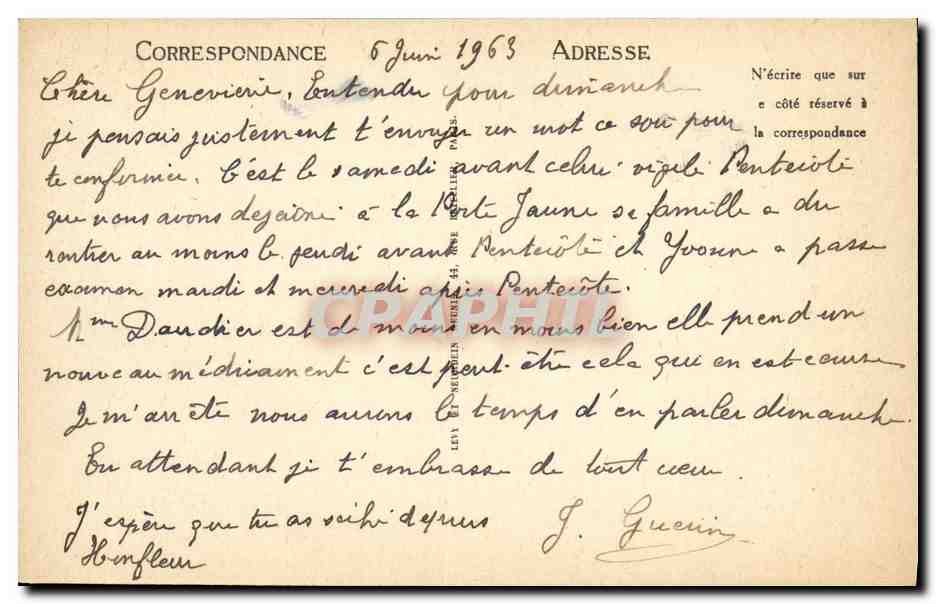 CORRESPONDANCE 6 Juin 1963 ADRESSE
N'écrire que sur
e côté réservé à
la correspondance
Chère Geneviève, Entendu pour dimanche
je pensais justement t'envoyer un mot ce soir pour
te confirmer. C'est le samedi avant celui vigile Pentecôte
que nous avons déjeuné à la Porte Jaune sa famille a du
rentrer au moins le jeudi avant Pentecôte et Yvonne a passé
examen mardi et mercredi après Pentecôte.
Mme Daudier est de moins en moins bien elle prend un
nouveau médicament c'est peut-être cela qui en est cause
Je m'arrête nous aurons le temps d'en parler dimanche.
En attendant je t'embrasse de tout cœur
J'espère que tu as depuis
Honfleur
J. Guerin
LEVY ET NEURDEIN REUNIS, 44, RUE LETELLIER, PARIS.
CPAPHIL